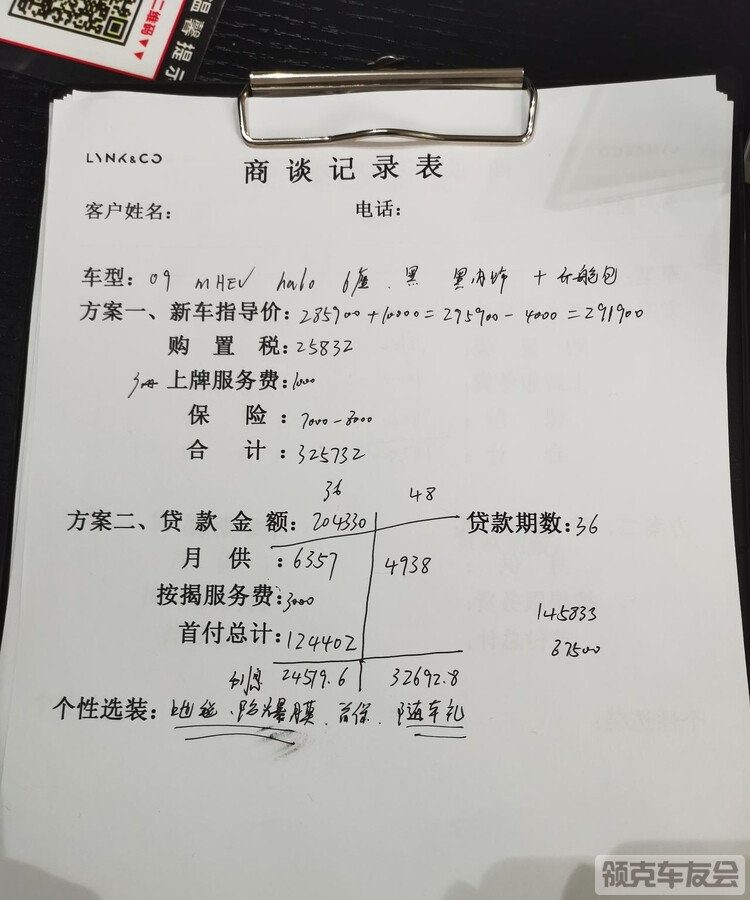 二维码
温馨提示
LYNK&CO
商谈记录表
客户姓名: 电话:
车型: 09 MHEV halo 6座 黑 黑内饰 +
方案一、新车指导价: 285900+10000=295900-4000=291900
购置税: 25832
上牌服务费: 1000
保险: 7000-8000
合计: 325732
36 48
方案二、贷款金额: 204330 贷款期数: 36
月供: 6357 4938
按揭服务费: 3000
145833
首付总计: 124402
37500
利息 24519.6 32692.8
个性选装: 地毯、防爆膜、首保、随车礼
领克车友会